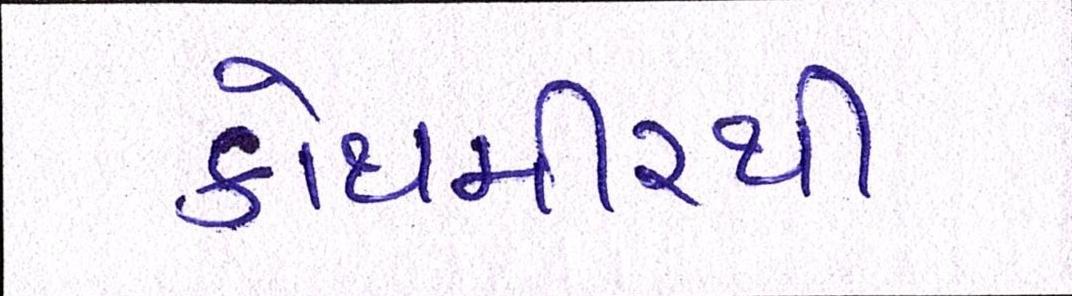 કોથમીરથી